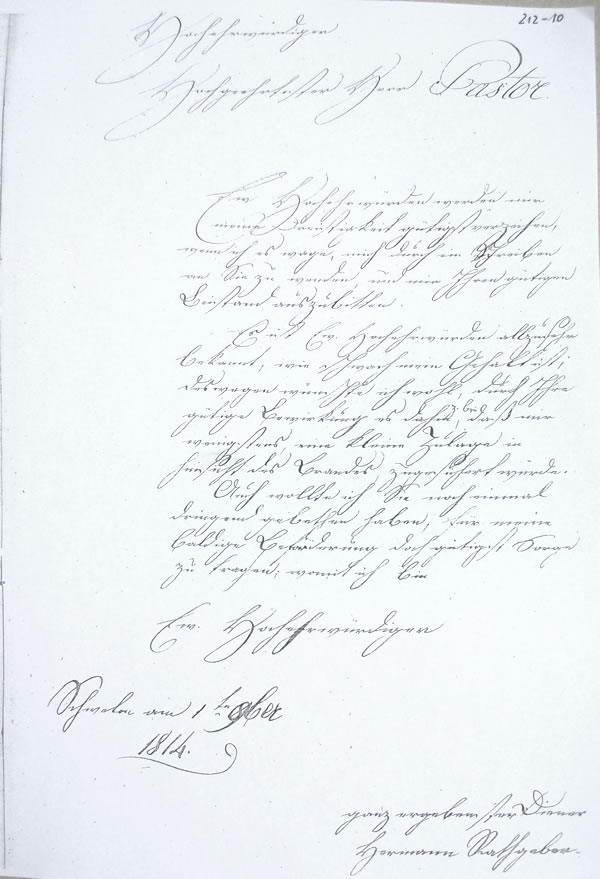 212-10
Hochehrwürdiger
Hochgeehrtester Herr Pastor.
Ew. Hochehrwürden werden mir
meine Dreistigkeit gütigst verzeihen,
wenn ich es wage, mich durch ein Schreiben
an Sie zu wenden, und mir Ihren gütigen
Beistand auszubitten.
Es ist Ew. Hochehrwürden allzusehr
bekannt, wie schwach mein Gehalt ist;
deswegen wünschte ich wohl, durch Ihre
gütige Bewirkung es dahin, daß mir
wenigstens eine kleine Zulage in
hinsicht des Brandes zugesichert würde.
Auch wollte ich Sie noch einmal
dringend gebethen haben, für meine
baldige Beförderung doch gütigst Sorge
zu tragen; womit ich bin
Ew. Hochehrwürdiger
Schwelm am 1ten 8ber
1814.
ganz ergebenster Diener
Hermann Rathgeber